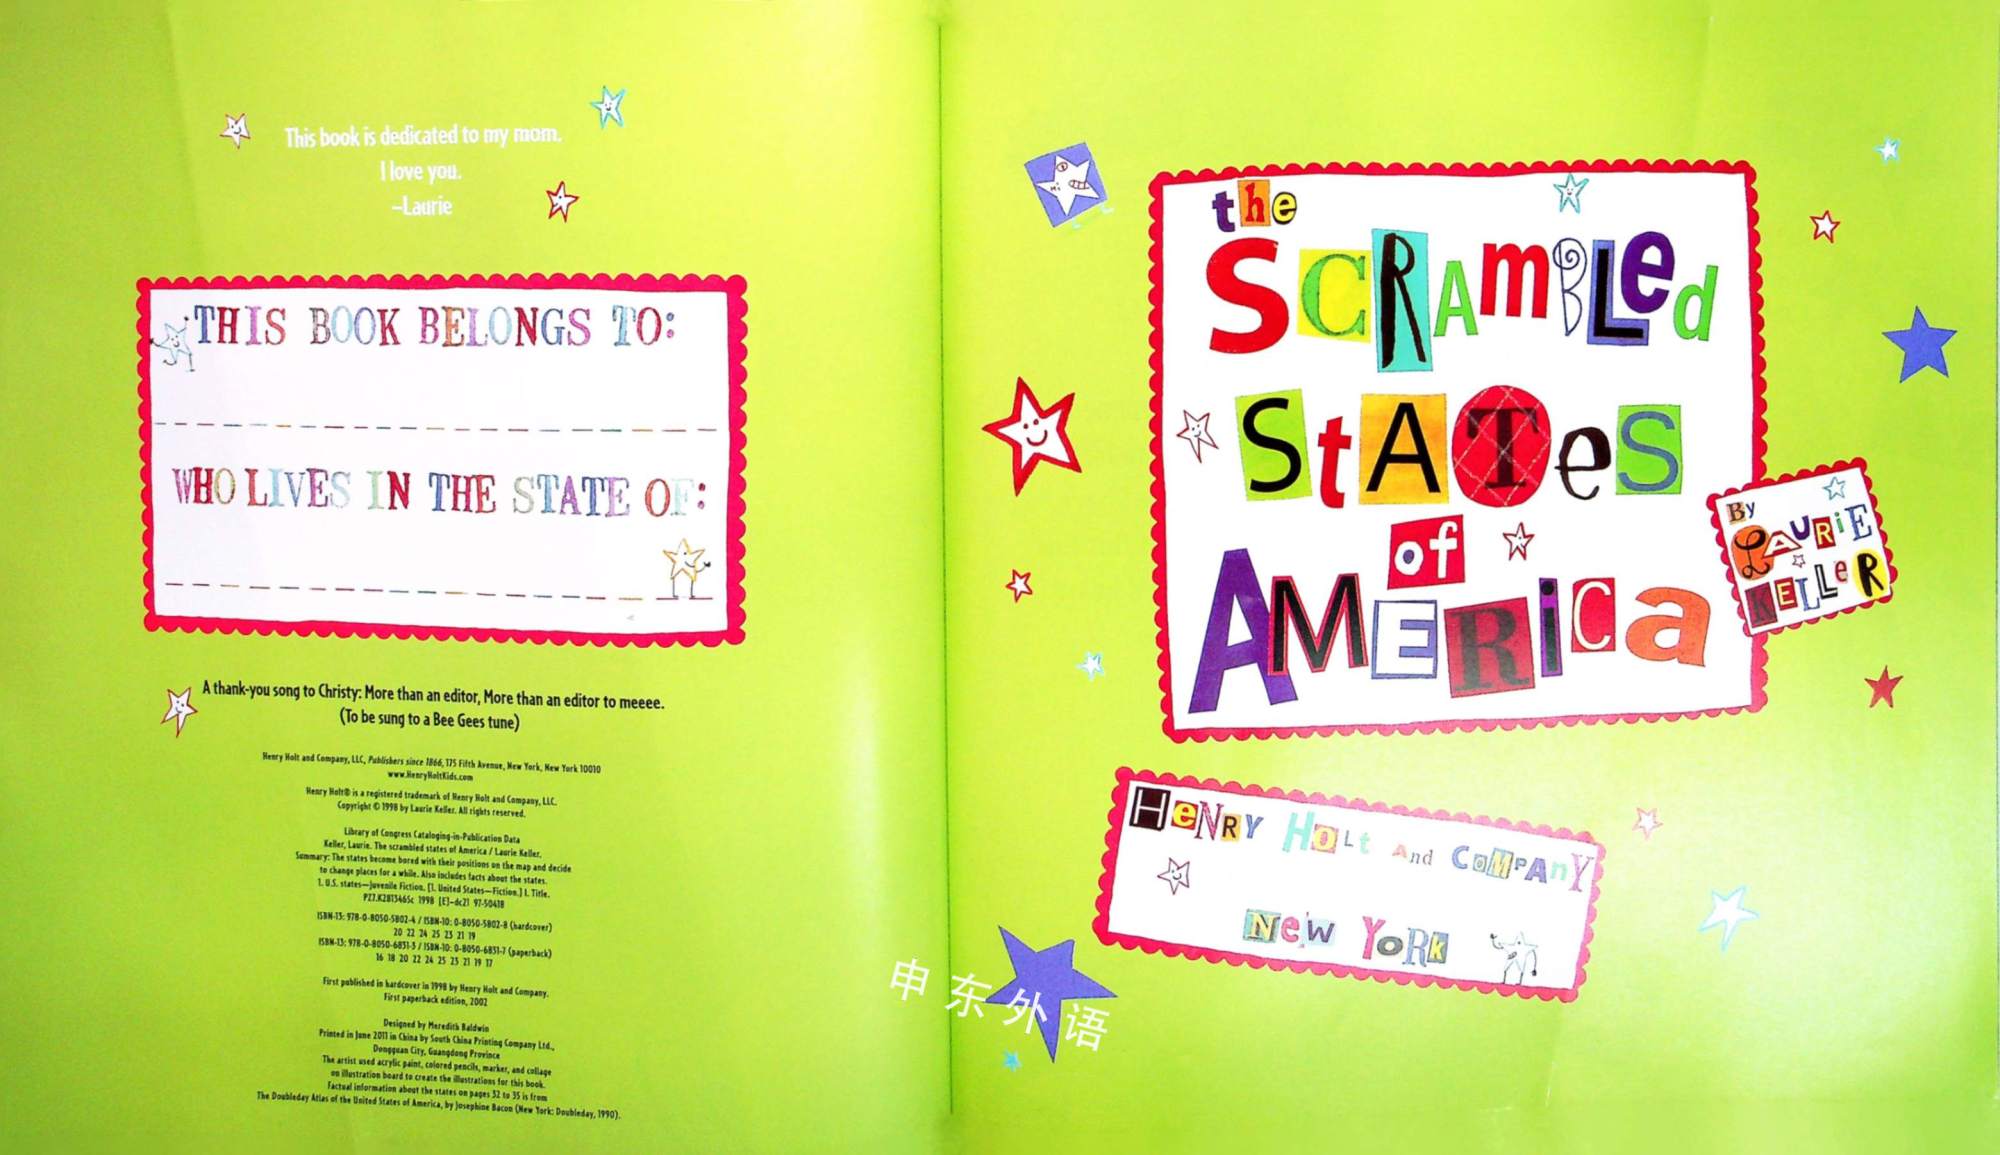 This book is dedicated to my mom.
I love you.
–Laurie
THIS BOOK BELONGS TO:
WHO LIVES IN THE STATE OF:
A thank-you song to Christy: More than an editor, More than an editor to meeee.
(To be sung to a Bee Gees tune)
Henry Holt and Company, LLC, Publishers since 1866, 175 Fifth Avenue, New York, New York 10010
www.HenryHoltKids.com
Henry Holt® is a registered trademark of Henry Holt and Company, LLC.
Copyright © 1998 by Laurie Keller. All rights reserved.
Library of Congress Cataloging-in-Publication Data
Keller, Laurie. The scrambled states of America / Laurie Keller.
Summary: The states become bored with their positions on the map and decide
to change places for a while. Also includes facts about the states.
1. U.S. states—Juvenile Fiction. [1. United States—Fiction.] I. Title.
PZ7.K281346Sc 1998 [E]—dc21 97-50418
ISBN-13: 978-0-8050-5802-4 / ISBN-10: 0-8050-5802-8 (hardcover)
20 22 24 25 23 21 19
ISBN-13: 978-0-8050-6831-3 / ISBN-10: 0-8050-6831-7 (paperback)
16 18 20 22 24 25 23 21 19 17
First published in hardcover in 1998 by Henry Holt and Company.
First paperback edition, 2002
Designed by Meredith Baldwin
Printed in June 2011 in China by South China Printing Company Ltd.,
Dongguan City, Guangdong Province
The artist used acrylic paint, colored pencils, marker, and collage
on illustration board to create the illustrations for this book.
Factual information about the states on pages 32 to 35 is from
The Doubleday Atlas of the United States of America, by Josephine Bacon (New York: Doubleday, 1990).
Hi
the
SCRAmBLed
StATeS
of
AMERiCa
By
LAURiE
KELLeR
HeNRY HoLt And CoMPAnY
NeW YoRk
申东外语